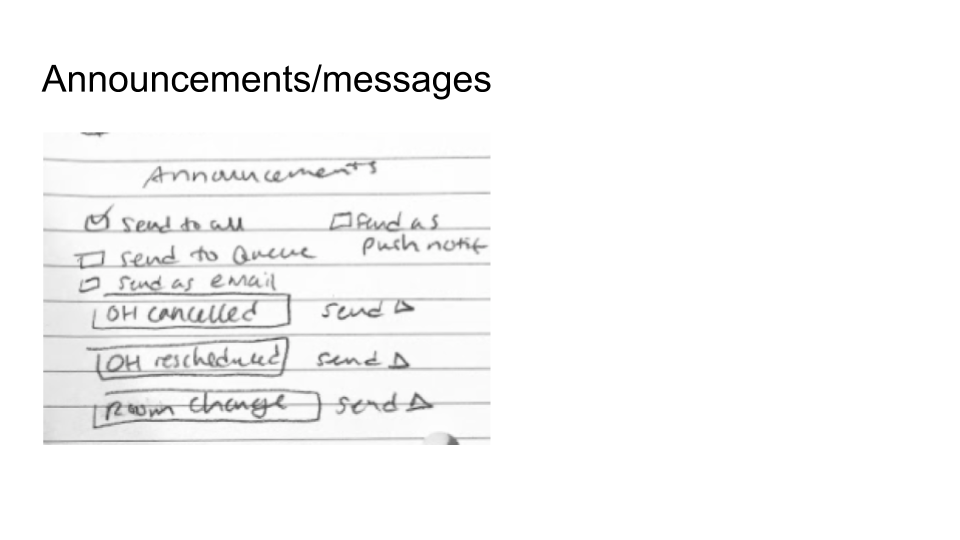 Announcements/messages
Announcements
Send to all
Send as
push notif
Send to Queue
Send as email
OH cancelled send
OH rescheduled send
Room change send